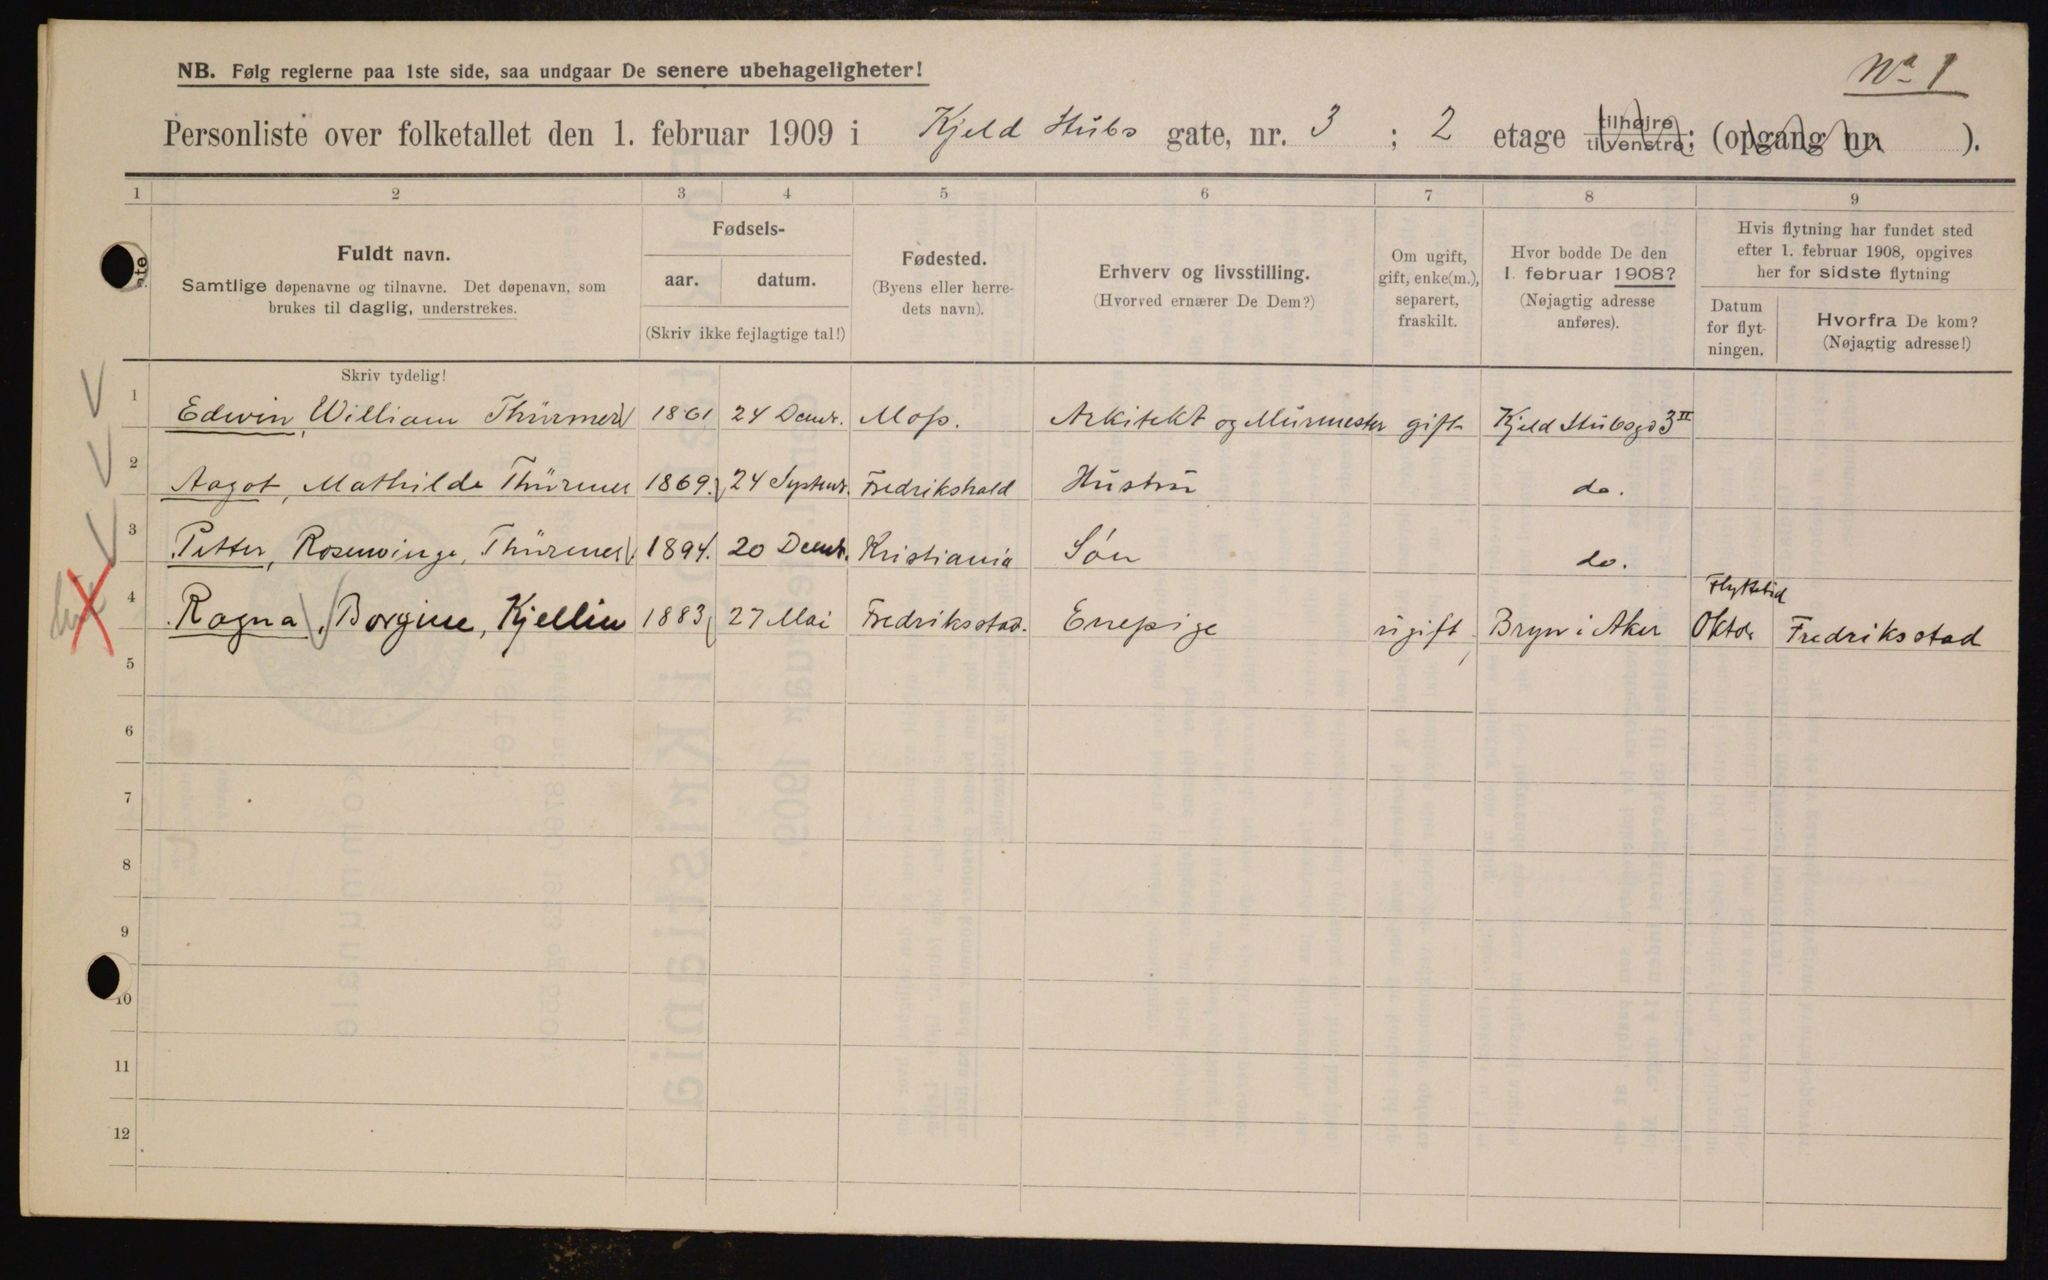 Nº 1
NB. Følg reglerne paa 1ste side, saa undgaar De senere ubehageligheter!
Personliste over folketallet den 1. februar 1909 i Kjeld Stubs gate, nr. 3 ; 2 etage tilhøjre tilvenstre; (opgang nr. ).
1 2 3 4 5 6 7 8 9
Fuldt navn.
Samtlige døpenavne og tilnavne. Det døpenavn, som
brukes til daglig, understrekes.
Fødsels-
aar. datum.
(Skriv ikke fejlagtige tal!)
Fødested.
(Byens eller herre-
dets navn).
Erhverv og livsstilling.
(Hvorved ernærer De Dem?)
Om ugift,
gift, enke(m.),
separert,
fraskilt.
Hvor bodde De den
1. februar 1908?
(Nøjagtig adresse
anføres).
Hvis flytning har fundet sted
efter 1. februar 1908, opgives
her for sidste flytning
Datum
for flyt-
ningen.
Hvorfra De kom?
(Nøjagtig adresse!)
Skriv tydelig!
1 Edwin, William Thürmer 1861 24 Decmr. Moss. Arkitekt og Murmester gift Kjeld Stubsgd 3 II
2 Aagot, Mathilde Thürmer 1869. 24 Septemr. Fredrikshald Hustru do.
3 Petter, Rosenvinge, Thürmer. 1894. 20 Decmr. Kristiania Søn do.
Flyttetid
4 Ragna, Borgine, Kjellin 1883 27 Mai Fredriksstad. Enepige ugift Bryn i Aker Oktbr Fredriksstad
5
6
7
8
9
10
11
12